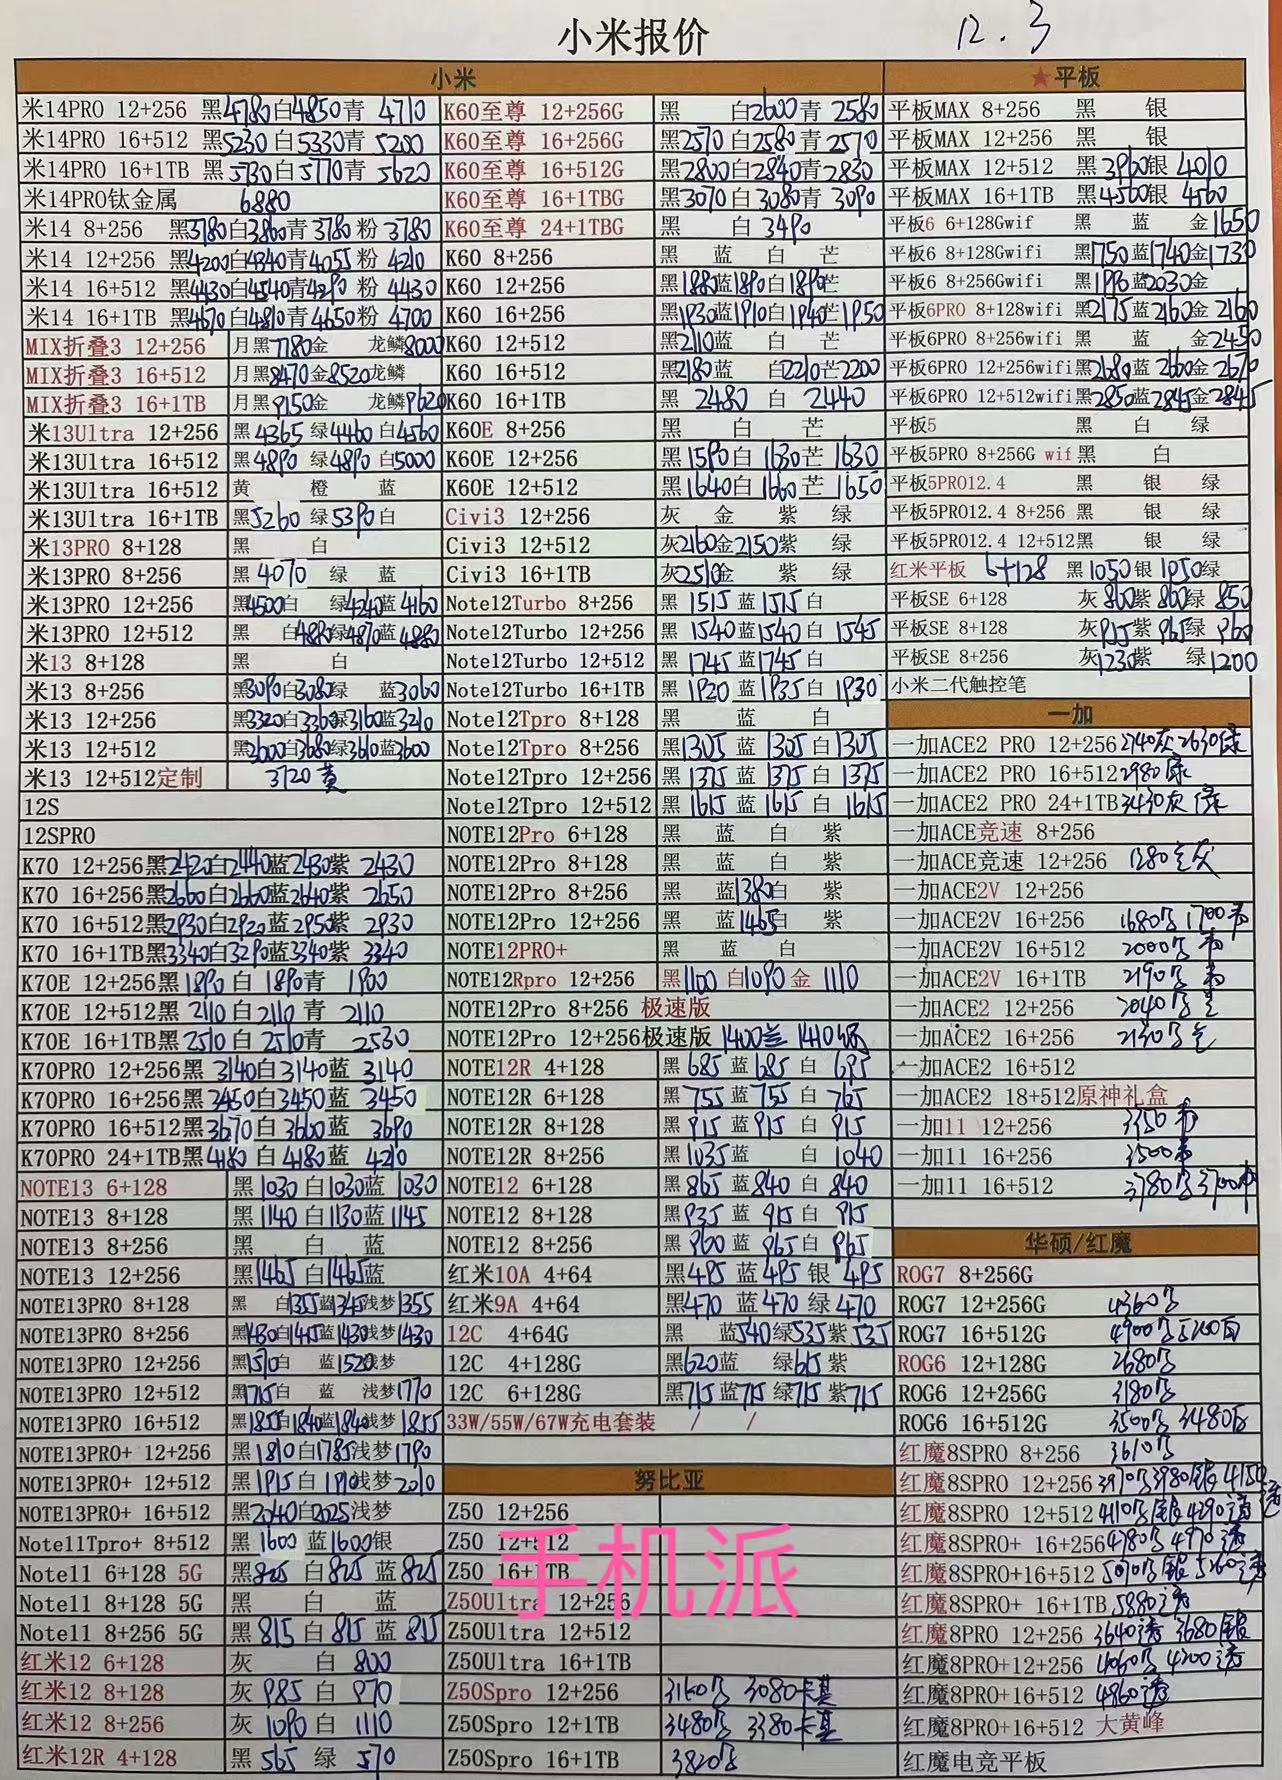 小米报价 12.3
小米
米14PRO 12+256 黑4780白4850青 4710
米14PRO 16+512 黑5230 白5330青 5200
米14PRO 16+1TB 黑 白5770青 5620
米14PRO钛金属 6880
米14 8+256 黑3780白3860青3780粉 3780
米14 12+256 黑4200白4340青4055粉 4210
米14 16+512 黑4430白4540青4290粉 4430
米14 16+1TB 黑4670白4810青4650粉 4700
MIX折叠3 12+256 月黑7780金 龙鳞8000
MIX折叠3 16+512 月黑8470金8520龙鳞
MIX折叠3 16+1TB 月黑9150金 龙鳞9620
米13Ultra 12+256 黑4365 绿4460 白4560
米13Ultra 16+512 黑4890 绿4890 白5000
米13Ultra 16+512 黄 橙 蓝
米13Ultra 16+1TB 黑5260 绿5390白
米13PRO 8+128 黑 白
米13PRO 8+256 黑4070 绿 蓝
米13PRO 12+256 黑4500白 绿4240蓝4160
米13PRO 12+512 黑 白4880绿4870蓝4880
米13 8+128 黑 白
米13 8+256 黑3090白3080绿 蓝3060
米13 12+256 黑3320白3360绿3160蓝3210
米13 12+512 黑3600白3680绿3610蓝3600
米13 12+512定制 3720黄
12S
12SPRO
K70 12+256黑2420白2440蓝2430紫 2430
K70 16+256黑2660白2660蓝2640紫 2650
K70 16+512黑2930白2920蓝2950紫 2930
K70 16+1TB黑3340白3290蓝3340紫 3340
K70E 12+256黑1890白 1890青 1900
K70E 12+512黑 2110白2110青 2110
K70E 16+1TB黑2510白 2510青 2530
K70PRO 12+256黑 3140白3140蓝 3140
K70PRO 16+256黑3450白3450蓝 3450
K70PRO 16+512黑3670白3660蓝 3690
K70PRO 24+1TB黑4180 白4180蓝 4210
NOTE13 6+128 黑1030白1030蓝1030
NOTE13 8+128 黑1140白1130蓝1145
NOTE13 8+256 黑 白 蓝
NOTE13 12+256 黑1465白1465蓝
NOTE13PRO 8+128 黑 白1355蓝1345浅梦1355
NOTE13PRO 8+256 黑1430白1415蓝1430浅梦1430
NOTE13PRO 12+256 黑1510白 蓝1520浅梦
NOTE13PRO 12+512 黑1715白 蓝 浅梦1770
NOTE13PRO 16+512 黑1855白1840蓝1840浅梦1855
NOTE13PRO+ 12+256 黑1810白1785浅梦1790
NOTE13PRO+ 12+512 黑1915白1910浅梦2010
NOTE13PRO+ 16+512 黑2040白2025浅梦
Note11Tpro+ 8+512 黑1600 蓝1600银
Note11 6+128 5G 黑825 白825 蓝825
Note11 8+128 5G 黑 白 蓝
Note11 8+256 5G 黑815白815蓝815
红米12 6+128 灰 白 800
红米12 8+128 灰985 白 970
红米12 8+256 灰1090白 1110
红米12R 4+128 黑565 绿 570
K60至尊 12+256G 黑 白2600青 2580
K60至尊 16+256G 黑2570白2580青2570
K60至尊 16+512G 黑2800白2840青2830
K60至尊 16+1TBG 黑3070白3080青3090
K60至尊 24+1TBG 黑 白3490
K60 8+256 黑 蓝 白 芒
K60 12+256 黑1880蓝1890白1890芒
K60 16+256 黑1930蓝1910白1940芒1950
K60 12+512 黑2110蓝 白 芒
K60 16+512 黑2180蓝 白2210芒2200
K60 16+1TB 黑2480 白 2440
K60E 8+256 黑 白 芒
K60E 12+256 黑1590白1630芒1630
K60E 12+512 黑1640白1660芒1650
Civi3 12+256 灰 金 紫 绿
Civi3 12+512 灰2160金2150紫 绿
Civi3 16+1TB 灰2510金 紫 绿
Note12Turbo 8+256 黑1515蓝1515白
Note12Turbo 12+256 黑1540蓝1540白1545
Note12Turbo 12+512 黑1745蓝1745白
Note12Turbo 16+1TB 黑1920蓝1935白1930
Note12Tpro 8+128 黑 蓝 白
Note12Tpro 8+256 黑1305蓝1305白1305
Note12Tpro 12+256 黑1375蓝1375白1375
Note12Tpro 12+512 黑1615蓝1615白1615
NOTE12Pro 6+128 黑 蓝 白 紫
NOTE12Pro 8+128 黑 蓝 白 紫
NOTE12Pro 8+256 黑 蓝1380白 紫
NOTE12Pro 12+256 黑 蓝1465白 紫
NOTE12PRO+ 黑 蓝 白
NOTE12Rpro 12+256 黑1100白1090金 1110
NOTE12Pro 8+256 极速版
NOTE12Pro 12+256极速版 1400兰 1410
NOTE12R 4+128 黑685蓝685白 695
NOTE12R 6+128 黑755蓝755白 765
NOTE12R 8+128 黑915蓝915白 915
NOTE12R 8+256 黑1035蓝 白1040
NOTE12 6+128 黑865蓝840白840
NOTE12 8+128 黑935蓝915白915
NOTE12 8+256 黑960蓝965白965
红米10A 4+64 黑495蓝495银495
红米9A 4+64 黑470蓝470绿470
12C 4+64G 黑 蓝540绿535紫535
12C 4+128G 黑620蓝 绿615紫
12C 6+128G 黑715蓝715绿715紫715
33W/55W/67W充电套装 / /
努比亚
Z50 12+256
Z50 12+512
Z50 16+1TB
Z50Ultra 12+256
Z50Ultra 12+512
Z50Ultra 16+1TB
Z50Spro 12+256 3160 3080卡其
Z50Spro 12+1TB 3480 3380卡其
Z50Spro 16+1TB 3820
★平板
平板MAX 8+256 黑 银
平板MAX 12+256 黑 银
平板MAX 12+512 黑3960银 4010
平板MAX 16+1TB 黑4560银 4560
平板6 6+128Gwif 黑 蓝 金1650
平板6 8+128Gwifi 黑1750蓝1740金1730
平板6 8+256Gwifi 黑1990蓝2030金
平板6PRO 8+128wifi 黑2175蓝2160金2160
平板6PRO 8+256wifi 黑 蓝 金2450
平板6PRO 12+256wifi黑2680蓝2660金2670
平板6PRO 12+512wifi黑2850蓝2845金2845
平板5 黑 白 绿
平板5PRO 8+256G wif黑 白
平板5PRO12.4 黑 银 绿
平板5PRO12.4 8+256 黑 银 绿
平板5PRO12.4 12+512黑 银 绿
红米平板 6+128 黑1050银1050绿
平板SE 6+128 灰860紫860绿850
平板SE 8+128 灰915紫965绿960
平板SE 8+256 灰1230紫 绿1200
小米二代触控笔
一加
一加ACE2 PRO 12+256 2740灰2630绿
一加ACE2 PRO 16+512 2980绿
一加ACE2 PRO 24+1TB 3430灰 绿
一加ACE竞速 8+256
一加ACE竞速 12+256 1280 灰
一加ACE2V 12+256
一加ACE2V 16+256 1680 1700
一加ACE2V 16+512 2000
一加ACE2V 16+1TB 2190
一加ACE2 12+256 2040
一加ACE2 16+256 2130
一加ACE2 16+512
一加ACE2 18+512原神礼盒
一加11 12+256 3350
一加11 16+256 3500
一加11 16+512 3780 3700
华硕/红魔
ROG7 8+256G
ROG7 12+256G 4360
ROG7 16+512G 4900
ROG6 12+128G 2680
ROG6 12+256G 3180
ROG6 16+512G 3500 3480白
红魔8SPRO 8+256 3610
红魔8SPRO 12+256 3910 3980银 4150
红魔8SPRO 12+512 4110 银 4290透
红魔8SPRO+ 16+256 4780 4970透
红魔8SPRO+16+512 5090 银 5260透
红魔8SPRO+ 16+1TB 5880透
红魔8PRO 12+256 3640透 3680银
红魔8PRO+12+256 4060 4200透
红魔8PRO+16+512 4860透
红魔8PRO+16+512 大黄峰
红魔电竞平板
手机派